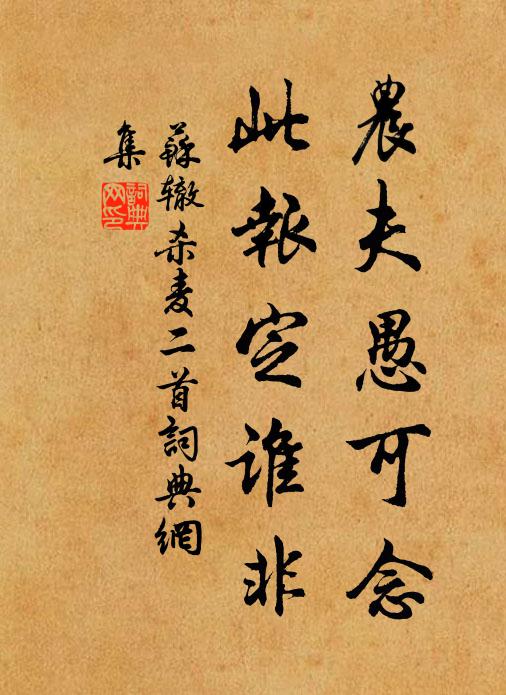 農夫愚可念
此報定誰非
蘇轍杀麦二首詞典網
集
詞典
网印